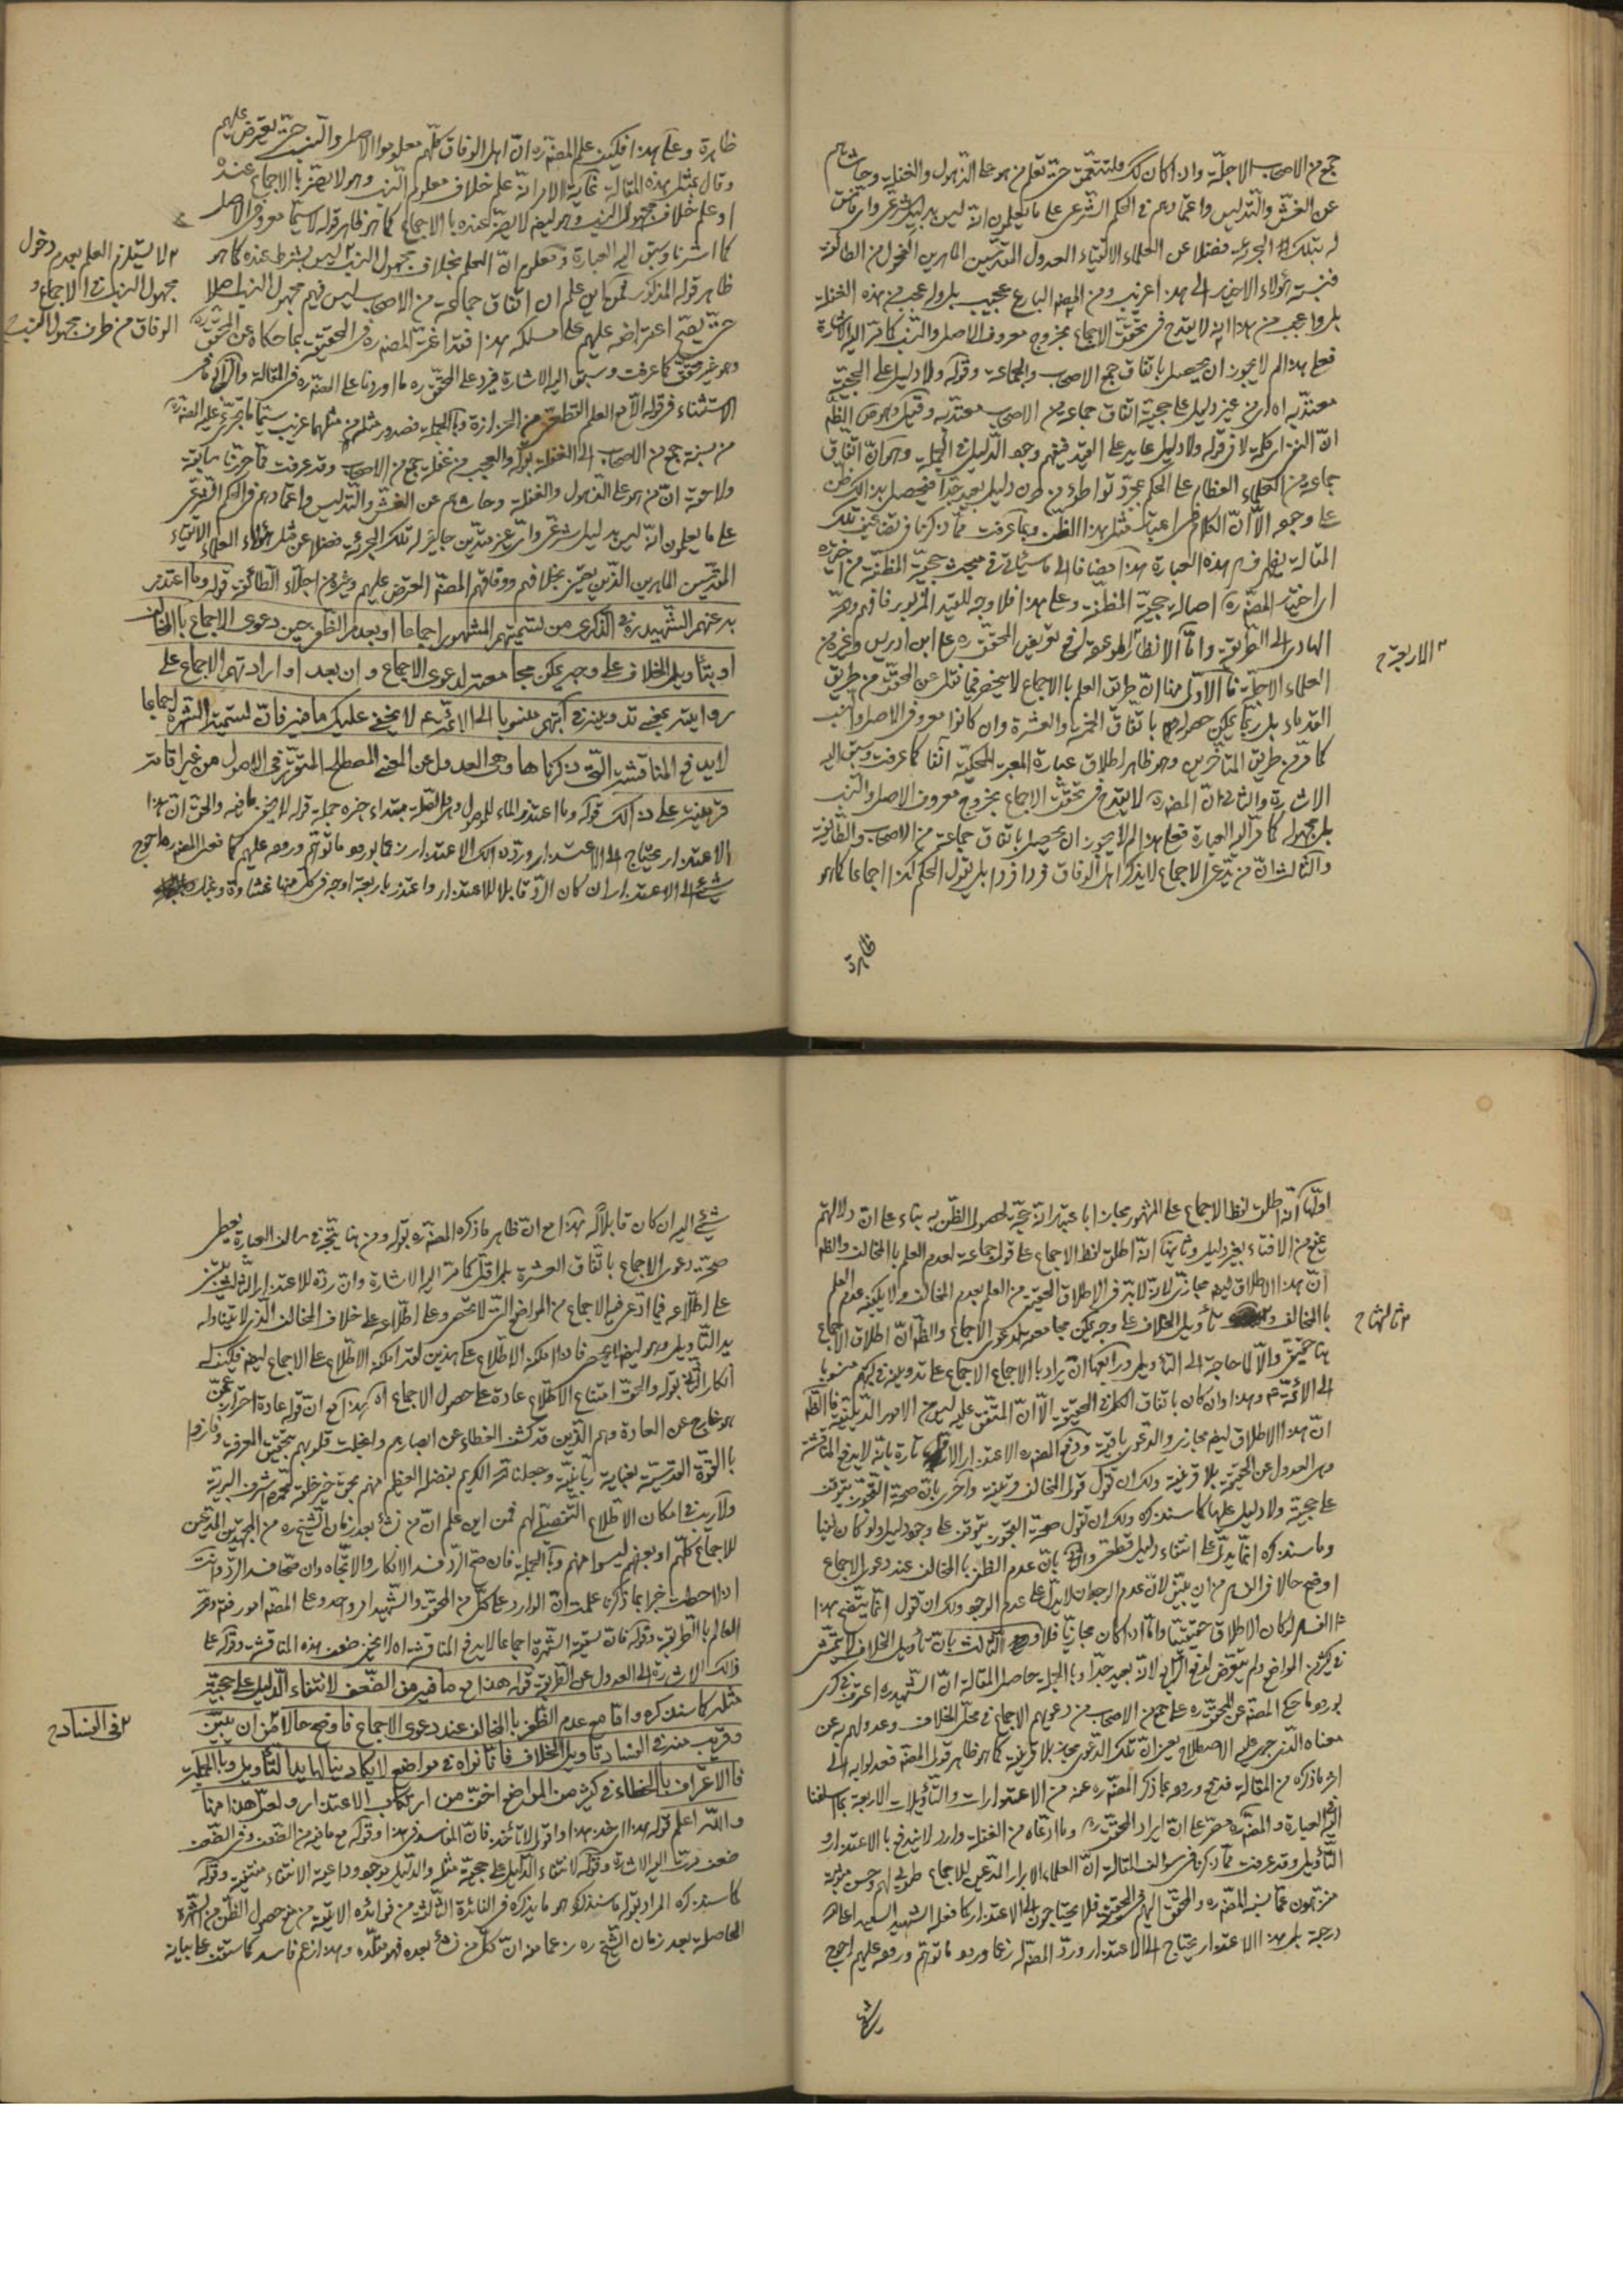 جمع من الاصحاب الاجلة وان كان ذلك فلنتعمق حتى تعلم من هو على الذهول والغفلة وحاشاهم
عن الغش والتدليس واعتمادهم فى الحكم الشرعى على ما يعلمون انه ليس بدليل شرعى
له بتلك الجرءة فضلا عن العلماء الاتقياء العدول المقدسين الماهرين الفحول من الطائفة
فنسبة هؤلاء الاخير الى هذا غريب ومن المصنف البارع عجيب بل واعجب من هذه الغفلة
بل واعجب من هذا انه لا يقدح فى تحقق الاجماع بخروج معروف الاصل والنسب كما مر اليه الاشارة
فعلى هذا لم لا يجوز ان يحصل باتفاق جمع الاصحاب والجماعة وقوله ولا دليل على الحجية
معتد به اه اى من غير دليل على حجية اتفاق جماعة من الاصحاب معتد به
ان النزاع لا فى قوله ولا دليل عليه على القيد فيفهم وجود الدليل فى الجملة وهو ان اتفاق
جماعة من العلماء العظام على الحكم بمجرد تواطؤ من دون دليل بعيد جدا فيحصل بذلك ظن
على وجود الا ان الكلام فى اعتبار مثل هذا الظن وبما عرفت مما ذكرنا فى تضاعيف تلك
المقالة يظهر فى هذه العبارة هذا مضافا الى ما سيأتى فى مبحث حجية المظنة من
اختيار المصنف ره اصالة حجية المظنة وعلى هذا فلا وجه للقيد المزبور فافهم وهو
الهادى الى الطريقة واما الانظار الموعودة فى تعويض المحقق ره على ابن ادريس وغيره من
الاربعة ح
العلماء الاجلة فالاول منها ان طريق العلم بالاجماع لا ينحصر فيما نقل عن المحقق من طريق
القدماء بل ربما يمكن حصوله باتفاق الخمسة والعشرة وان كانوا معروفى الاصل والنسب
كما مر من طريق المتأخرين وهو ظاهر اطلاق عبارة المعتبر المحكية آنفا كما عرفت وسبق اليه
الاشارة والثانى ان المصنف ره لا يقدح فى تحقق الاجماع بخروج معروف الاصل والنسب
بل مجهوله كما مر اليه العبارة فعلى هذا لم لا يجوز ان يحصل باتفاق جماعة من الاصحاب والطائفة
والثالث ان من يدعى الاجماع لا يذكر اهل الوفاق فردا فردا بل يقول الحكم كذا اجماعا كما هو
ظاهرة
ظاهرة وعلى هذا فكيف علم المصنف ره ان اهل الوفاق كلهم معلوموا الاصل والنسب حتى يعترض عليهم
وقال بمثل هذه المقالة غاية الامر انه علم خلاف معلوم النسب وهو لا يضر بالاجماع عنده
او علم خلاف مجهول النسب وهو ايضا لا يضر عنده بالاجماع كما هو ظاهر قوله لا سيما معروفى الاصل
كما اشرنا وسبق اليه العبارة ومعلوم ان العلم بخلاف مجهول النسب ليس بشرط عنده كما هو
لا يستلزم العلم بعدم دخول
مجهول النسب فى الاجماع و
الوفاق من طرف مجهول النسب
ظاهر قوله المذكور فمن اين علم ان اتفاق جماعة من الاصحاب ليس فيهم مجهول النسب اصلا
حتى يصح اعتراضه عليهم على مسلكه هذا فقد اغتر المصنف ره فى الحقيقة بما حكاه عن المحقق ره
وهو غير محقق كما عرفت وسبق اليه الاشارة فيرد على المحقق ره ما اوردنا على المصنف ره فى المقالة
الاستثناء فى قوله الا مع العلم القطعى من الحزازة وبالجملة فصدور مثله من مثلهما غريب سيما ما تجرى عليه المصنف ره
من نسبة جمع من الاصحاب الى الغفلة بقوله والعجب من غفلة جمع من الاصحاب وقد عرفت مما حررنا سابقة
ولاحقة ان من هو على الذهول والغفلة وحاشاهم عن الغش والتدليس واعتمادهم فى الحكم الشرعى
على ما يعلمون انه ليس بدليل شرعى وان غير متدين جائز له تلك الجرءة فضلا عن مثل هؤلاء العلماء الاتقياء
المقدسين الماهرين الذين يعتبر بخلافهم ووفاقهم المصنف المعترض عليهم وغيره من اجلاء الطائفة قوله وما اعتذر
به عنهم الشهيد ره فى الذكرى من تسميتهم المشهور اجماعا او بعدم الظفر حين دعوى الاجماع بالمخالف
او بتأويل الخلاف على وجه يمكن مجامعته لدعوى الاجماع وان بعد او ارادتهم الاجماع على
روايته بمعنى تدوينه فى كتبهم منسوبا الى الائمة ع لا يخفى عليك ما فيه فان تسمية الشهرة اجماعا
لا يدفع المناقشة التى ذكرناها وهى العدول عن المعنى المصطلح المتقرر فى الاصول من غير اقامة
قرينة على ذلك قوله وما اعتذر الماء للموصول وهو بالصلة مبتداء خبره جملة قوله لا يخفى ما فيه والحق ان هذا
الاعتذار يحتاج الى الاعتذار ورده ذلك الاعتذار زعما بورود ما توهم وروده عليهم كما فعل المصنف ره احوج
شئ الى الاعتذار ان كان الرد قابلا للاعتذار واعتذر باربعة اوجه فى كل منها غشاوة وغبار
اولها انه اطلق لفظ الاجماع على المشهور مجازا باعتبار انه حجة لحصول الظن به بناء على ان دلالتهم
يمنع من الافتاء بغير دليل وثانيها انه اطلق لفظ الاجماع على قول جماعة لعدم العلم بالمخالف والظاهر
ان هذا الاطلاق ايضا مجازى لانه لا بد فى الاطلاق الحقيقى من العلم بعدم المخالف ولا يكفيه عدم العلم
وثالثها ح
بالمخالف و تأويل الخلاف على وجه يمكن مجامعته لدعوى الاجماع والظاهر ان اطلاق الاجماع
هنا حقيقى والا لا حاجة الى التأويل ورابعها ان يراد بالاجماع الاجماع على تدوينه فى كتبهم منسوبا
الى الائمة ع وهذا وان كان باتفاق الكل فى الحقيقة الا ان المتفق عليه ليس من الامور الدينية فالظاهر
ان هذا الاطلاق ايضا مجازى والدعوى باقية ودفع المصنف ره الاعتذار الاول تارة بانه لا يدفع المناقشة
وهى العدول عن الحقيقة بلا قرينة ولك ان تقول قول المخالف قرينة واخرى بان صحة التجوز يتوقف
على حجيته ولا دليل عليها كما سنذكره ولك ان تقول صحة التجوز يتوقف على وجود دليل ولو كان ظنيا
وما سنذكره انما يدل على انتفاء دليل قطعى والثانى بان عدم الظفر بالمخالف عند دعوى الاجماع
اوضح حالا فى الفساد من ان يبين لان عدم الوجدان لا يدل على عدم الوجود ولك ان تقول انما يتضح بهذا
الفساد لو كان الاطلاق حقيقيا واما اذا كان مجازيا فلا و الثالث بان تأويل الخلاف لا يتمشى
فى كثير من المواضع ولم يتعرض لدفع الرابع لانه بعيد جدا وبالجملة حاصل المقالة ان الشهيد ره اعترف فى كرى
بورود ما حكى المصنف عن المحقق ره على جمع من الاصحاب من دعويهم الاجماع فى محل الخلاف وعدولهم به عن
معناه الذى جرى عليه الاصطلاح يعنى ان تلك الدعوى مجاز بلا قرينة كما هو ظاهر قول المصنف فعدلوا به الى
اخر ما ذكره من المقالة فدفع وروده بما ذكر المصنف ره عنه من الاعتذارات والتأويلات الاربعة كما اسلفنا
اليه العبارة والمصنف ره مصر على ان ايراد المحقق ره وما ادعاه من الغفلة وارد لا يندفع بالاعتذار و
التأويل وقد عرفت مما ذكرنا فى سوالف المقالة ان العلماء الابرار المدعين للاجماع طوبى لهم وحسن مآب
منزهون عما نسبه المصنف ره والمحقق اليهم فى الحقيقة فلا يحتاجون الى الاعتذار كما فعله الشهيد السعيد اعلى الله
درجته بل هذا الاعتذار يحتاج الى الاعتذار ورد المصنف له زعما ورود ما توهم وروده عليهم احوج
شئ
شئ اليه ان كان قابلا له هذا مع ان ظاهر ما ذكره المصنف ره بقوله ومن هنا يتجه فى سالف العبارة يعطى
صحة دعوى الاجماع باتفاق العشرة بل اقل كما مر اليه الاشارة وان رده للاعتذار الثالث يبتنى
على اطلاعه فيما ادعى فيه الاجماع من المواضع التى لا تحصى وعلى اطلاعه على خلاف المخالف الذى لا يتناوله
يد التأويل وهو ايضا لا يحصى فاذا امكنه الاطلاع على هذين لقد امكنه الاطلاع على الاجماع ايضا فكيف له
انكار الثانى بقوله والحق امتناع الاطلاع عادة على حصول الاجماع اه هذا مع ان قوله عادة احتراز عمن
هو خارج عن العادة وهم الذين قد كشف الغطاء عن ابصارهم وانجلت قلوبهم بتحقيق المعرفة وفازوا
بالقوة القدسية بعناية ربانية وجعلنا الله الكريم بفضله العظيم منهم بحق خير خلقه محمد اشرف البرية
ولا ريب فى امكان الاطلاع التفصيلى لهم فمن اين علم ان من نشأ بعد زمان الشيخ ره من المجتهدين المدعين
للاجماع كلهم او بعضهم ليسوا منهم وبالجملة فان صح الرد فسد الانكار والاتجاه وان صحا فسد الرد وانت
اذا احطت خبرا بما ذكرنا علمت ان الوارد على كل من المحقق والشهيد امر واحد وعلى المصنف امور فتدبر
العالم بالطريقة وقوله فان تسمية الشهرة اجماعا لا يدفع المناقشة اه لا يخفى ضعف هذه المناقشة وقوله على
ذلك الاشارة الى العدول عن الطريق قوله هذا مع ما فيه من الضعف لانتفاء الدليل على حجية
مثله كما سنذكره واما مع عدم الظفر بالمخالف عند دعوى الاجماع فاوضح حالا من ان يبين
فى الفساد ح
وقريب منه فى الفساد تأويل الخلاف فانا نراه فى مواضع لا يكاد ينالها يد التأويل وبالجملة
فالاعتراف بالخطاء فى كثير من المواضع اخف من ارتكاب الاعتذار ولعل هذا منها
والله اعلم قوله هذا اى خذ هذا او قوله لا تأخذ فان المفاسد فى هذا وقوله مع ما فيه من الضعف وفى الضعف
ضعف مرت اليه الاشارة وقوله لانتفاء الدليل على حجية مثله والدليل موجود وداعية الانتفاء منتفية وقوله
كما سنذكره المراد بقوله ما سنذكره هو ما يذكره فى الفائدة الثالثة من فوائده الآتية من منع حصول الظن من الشهرة
الحاصلة بعد زمان الشيخ ره زعما منه ان كل من نشأ بعده فهو مقلده وهذا زعم فاسد كما ستقف على بيانه